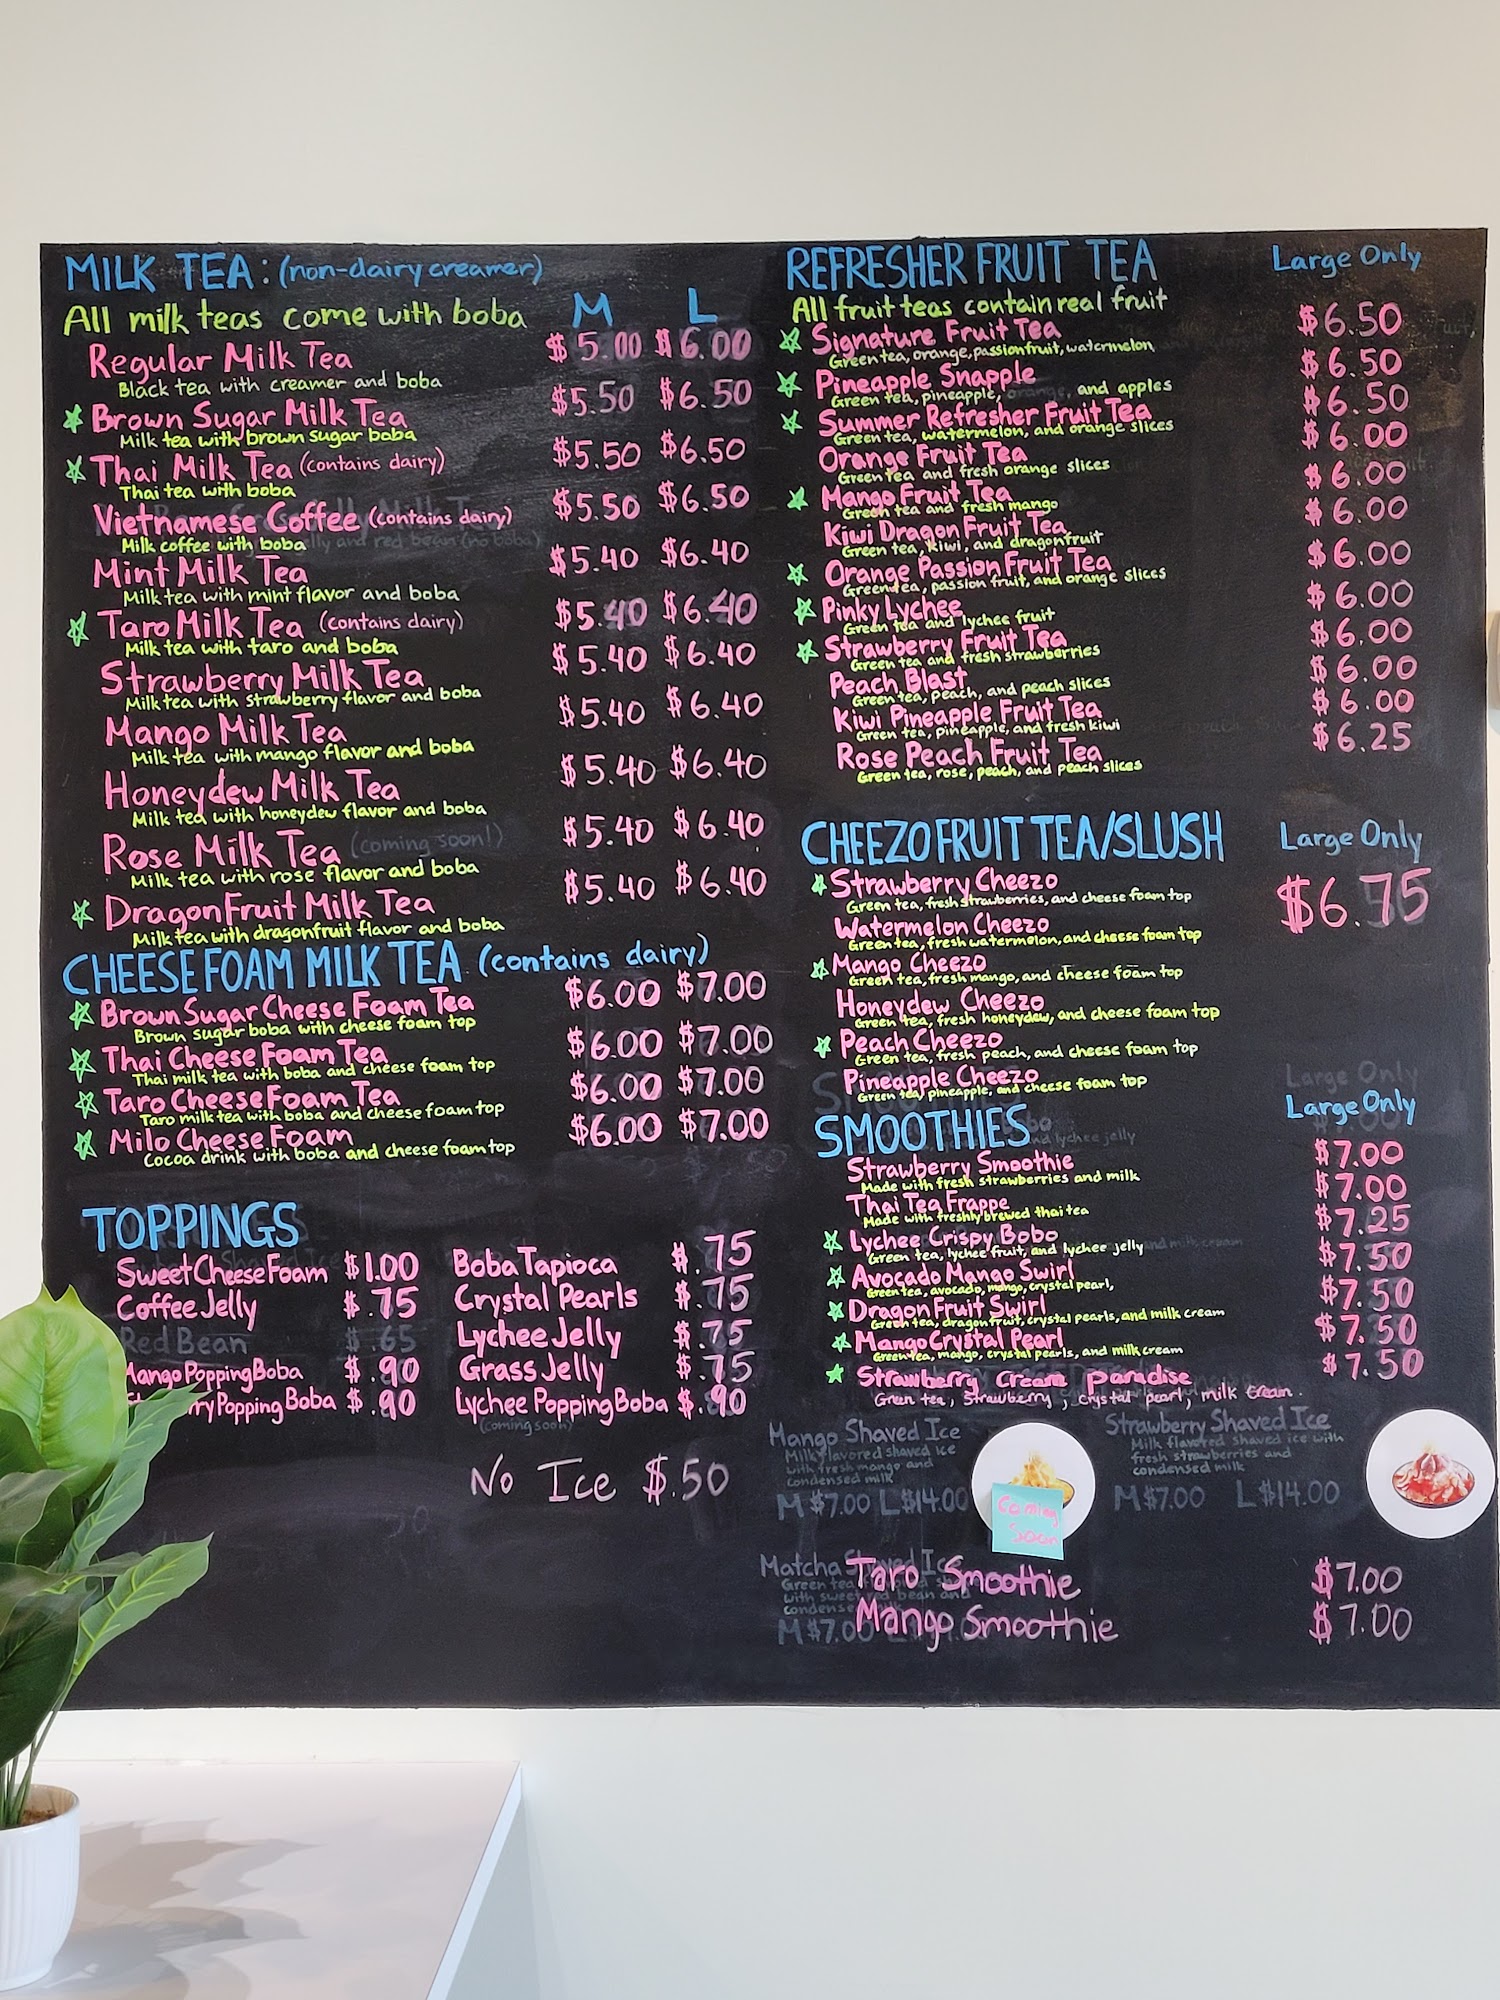 MILK TEA: (non-dairy creamer)
All milk teas come with boba M L
Regular Milk Tea $5.00 $6.00
Black tea with creamer and boba
Brown Sugar Milk Tea $5.50 $6.50
Milk tea with brown sugar boba
Thai Milk Tea (contains dairy) $5.50 $6.50
Thai tea with boba
Vietnamese Coffee (contains dairy) $5.50 $6.50
Milk coffee with boba
Mint Milk Tea $5.40 $6.40
Milk tea with mint flavor and boba
Taro Milk Tea (contains dairy) $5.40 $6.40
Milk tea with taro and boba
Strawberry Milk Tea $5.40 $6.40
Milk tea with strawberry flavor and boba
Mango Milk Tea $5.40 $6.40
Milk tea with mango flavor and boba
Honeydew Milk Tea $5.40 $6.40
Milk tea with honeydew flavor and boba
Rose Milk Tea (coming soon!) $5.40 $6.40
Milk tea with rose flavor and boba
DragonFruit Milk Tea $5.40 $6.40
Milk tea with dragonfruit flavor and boba
CHEESE FOAM MILK TEA (contains dairy)
Brown Sugar Cheese Foam Tea $6.00 $7.00
Brown sugar boba with cheese foam top
Thai Cheese Foam Tea $6.00 $7.00
Thai milk tea with boba and cheese foam top
Taro Cheese Foam Tea $6.00 $7.00
Taro milk tea with boba and cheese foam top
Milo Cheese Foam $6.00 $7.00
Cocoa drink with boba and cheese foam top
TOPPINGS
Sweet Cheese Foam $1.00 Boba Tapioca $.75
Coffee Jelly $.75 Crystal Pearls $.75
Red Bean $.65 Lychee Jelly $.75
Mango Popping Boba $.90 Grass Jelly $.75
Popping Boba $.90 Lychee Popping Boba $.90
(coming soon)
No Ice $.50
REFRESHER FRUIT TEA Large Only
All fruit teas contain real fruit
Signature Fruit Tea $6.50
Green tea, orange, passionfruit, watermelon
Pineapple Snapple $6.50
Green tea, pineapple, orange, and apples
Summer Refresher Fruit Tea $6.50
Green tea, watermelon, and orange slices
Orange Fruit Tea $6.00
Green tea and fresh orange slices
Mango Fruit Tea $6.00
Green tea and fresh mango
Kiwi Dragon Fruit Tea $6.00
Green tea, kiwi, and dragonfruit
Orange Passion Fruit Tea $6.00
Green tea, passion fruit, and orange slices
Pinky Lychee $6.00
Green tea and lychee fruit
Strawberry Fruit Tea $6.00
Green tea and fresh strawberries
Peach Blast $6.00
Green tea, peach, and peach slices
Kiwi Pineapple Fruit Tea $6.00
Green tea, pineapple, and fresh kiwi
Rose Peach Fruit Tea $6.25
Green tea, rose, peach, and peach slices
CHEEZO FRUIT TEA/SLUSH Large Only
Strawberry Cheezo $6.75
Green tea, fresh strawberries, and cheese foam top
Watermelon Cheezo
Green tea, fresh watermelon, and cheese foam top
Mango Cheezo
Green tea, fresh mango, and cheese foam top
Honeydew Cheezo
Green tea, fresh honeydew, and cheese foam top
Peach Cheezo
Green tea, fresh peach, and cheese foam top
Pineapple Cheezo
Green tea, pineapple, and cheese foam top
Large Only
SMOOTHIES Large Only
Strawberry Smoothie $7.00
Made with fresh strawberries and milk
Thai Tea Frappe $7.00
Made with freshly brewed thai tea
Lychee Crispy Bobo $7.25
Green tea, lychee fruit, and lychee jelly
Avocado Mango Swirl $7.50
Green tea, avocado, mango, crystal pearl,
Dragon Fruit Swirl $7.50
Green tea, dragon fruit, crystal pearls, and milk cream
Mango Crystal Pearl $7.50
Green tea, mango, crystal pearls, and milk cream
Strawberry Cream paradise $7.50
Green tea, Strawberry, crystal pearl, milk cream.
Mango Shaved Ice
Milk flavored shaved ice
with fresh mango and
condensed milk
M $7.00 L $14.00
Coming
Soon
Strawberry Shaved Ice
Milk flavored shaved ice with
fresh strawberries and
condensed milk
M $7.00 L $14.00
Matcha Shaved Ice
Taro Smoothie $7.00
Mango Smoothie $7.00